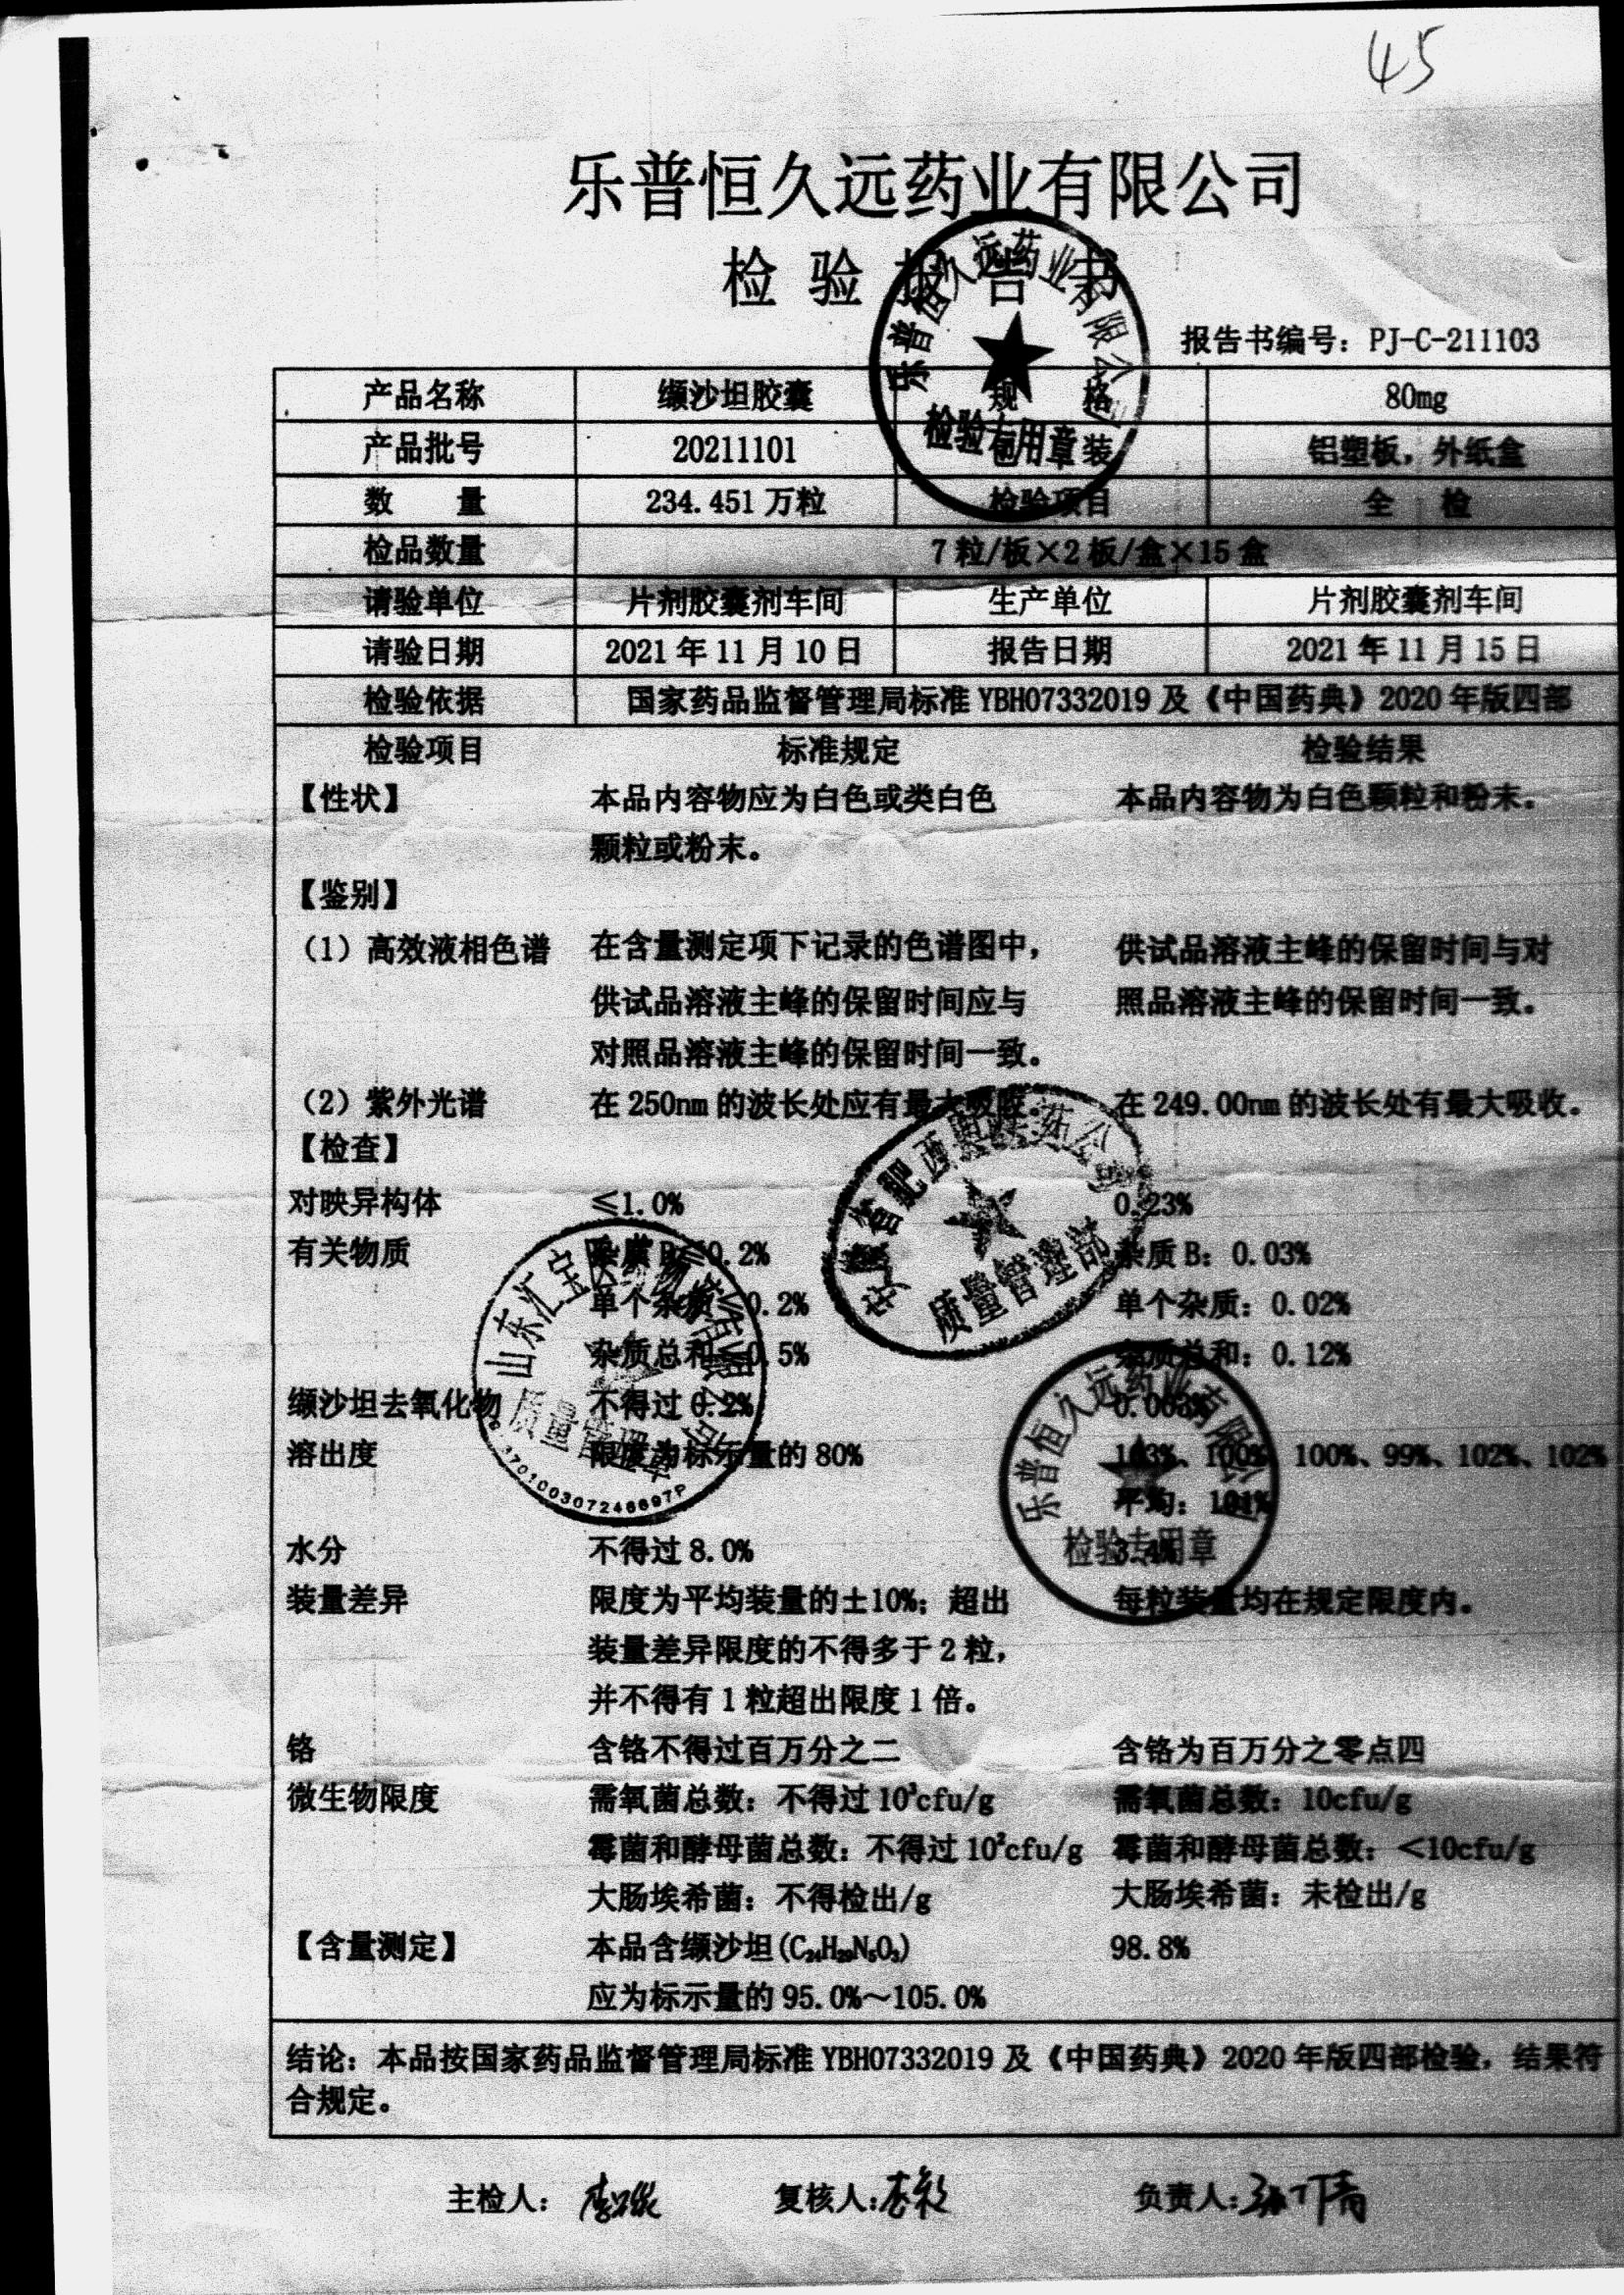 45
乐普恒久远药业有限公司
检验报告书
报告书编号：PJ-C-211103
产品名称 缬沙坦胶囊 规格 80mg
产品批号 20211101 包装 铝塑板，外纸盒
数量 234.451万粒 检验项目 全检
检品数量 7粒/板×2板/盒×15盒
请验单位 片剂胶囊剂车间 生产单位 片剂胶囊剂车间
请验日期 2021年11月10日 报告日期 2021年11月15日
检验依据 国家药品监督管理局标准YBH07332019及《中国药典》2020年版四部
检验项目 标准规定 检验结果
【性状】 本品内容物应为白色或类白色 本品内容物为白色颗粒和粉末。
颗粒或粉末。
【鉴别】
（1）高效液相色谱 在含量测定项下记录的色谱图中， 供试品溶液主峰的保留时间与对
供试品溶液主峰的保留时间应与 照品溶液主峰的保留时间一致。
对照品溶液主峰的保留时间一致。
（2）紫外光谱 在250nm的波长处应有最大吸收。 在249.00nm的波长处有最大吸收。
【检查】
对映异构体 ≤1.0% 0.23%
有关物质 杂质B≤0.2% 杂质B：0.03%
单个杂质 0.2% 单个杂质：0.02%
杂质总和 0.5% 杂质总和：0.12%
缬沙坦去氧化物 不得过0.2%
溶出度 限度为标示量的80% 103%、100%、100%、99%、102%、102%
平均：101%
水分 不得过8.0% 3.4%
装量差异 限度为平均装量的±10%；超出 每粒装量均在规定限度内。
装量差异限度的不得多于2粒，
并不得有1粒超出限度1倍。
铬 含铬不得过百万分之二 含铬为百万分之零点四
微生物限度 需氧菌总数：不得过10³cfu/g 需氧菌总数：10cfu/g
霉菌和酵母菌总数：不得过10²cfu/g 霉菌和酵母菌总数：＜10cfu/g
大肠埃希菌：不得检出/g 大肠埃希菌：未检出/g
【含量测定】 本品含缬沙坦(C₂₄H₂₉N₅O₃) 98.8%
应为标示量的95.0%～105.0%
结论：本品按国家药品监督管理局标准YBH07332019及《中国药典》2020年版四部检验，结果符
合规定。
主检人： 复核人： 负责人：
乐普恒久远药业有限公司
检验专用章
质量管理部
山东汇宝医药
质量管理章
乐普恒久远药业有限公司
检验专用章